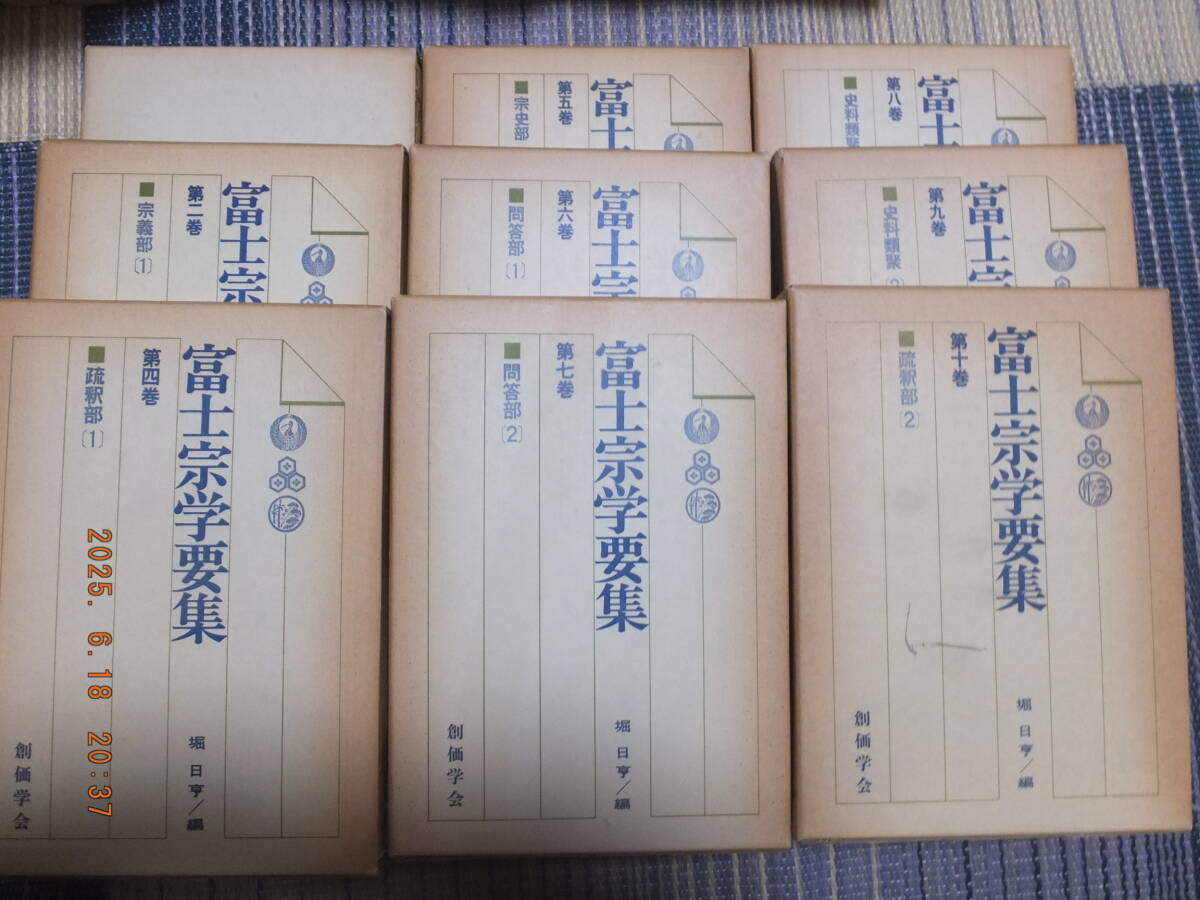 富士
第五巻
■宗史部
富士
第八巻
■史料類聚
富士宗
第二巻
■宗義部〔1〕
富士宗
第六巻
■問答部〔1〕
富士宗
第九巻
■史料類聚〔2〕
富士宗学要集
第四巻
■疏釈部〔1〕
堀日亨/編
創価学会
富士宗学要集
第七巻
■問答部〔2〕
堀日亨/編
創価学会
富士宗学要集
第十巻
■疏釈部〔2〕
堀日亨/編
創価学会
2025. 6.18 20:37